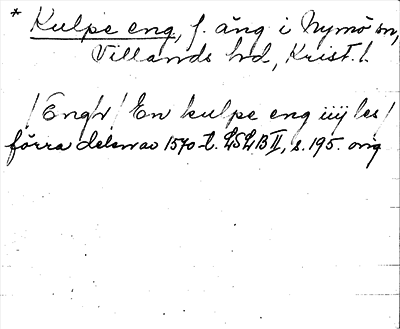 * Kulpe eng, f. äng i Nymö sn,
Villands hd, Krist. l.
/Engh/ En kulpe eng iiij les/
förra delen av 1570-t. LSLB II, s. 195. orig